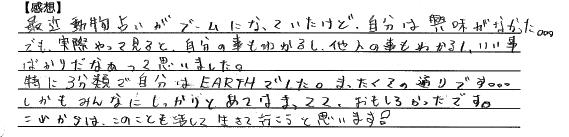 【感想】
最近動物占いがブームになっていたけど、自分は興味がなかた。。。
でも、実際やって見ると、自分の事もわかるし、他人の事もわかるし、いい事
ばかりだなぁって思いました。
特に3分類で自分はEARTHでした。まったくその通りです。。。
しかもみんなにしっかりとあてはまってて、おもしろかったです。
これからは、このことも活して生きて行こうと思います!